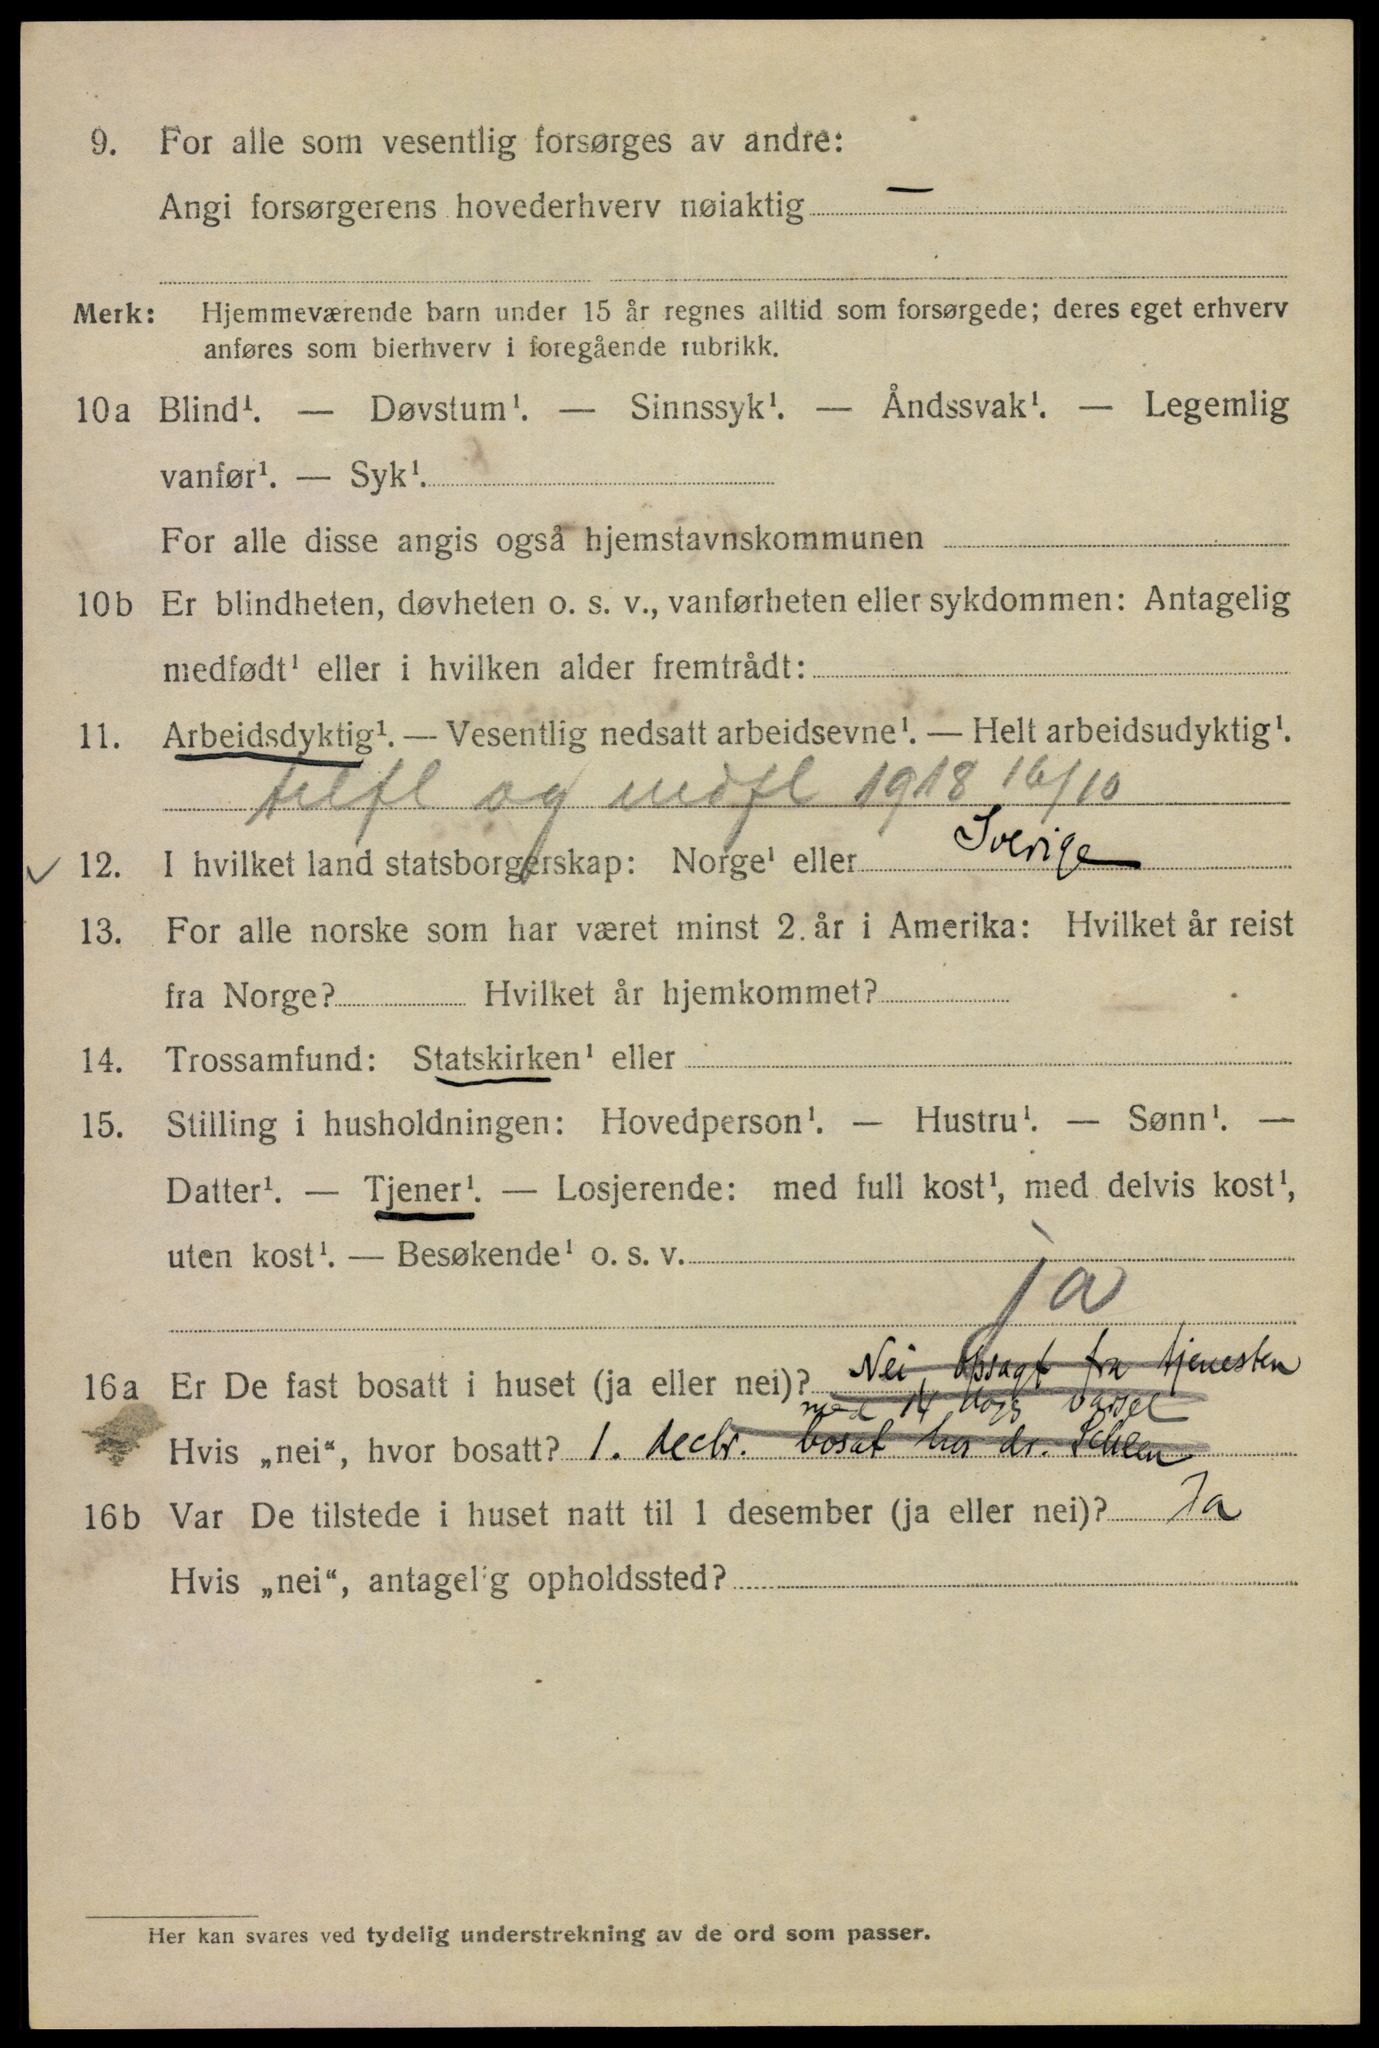 9. For alle som vesentlig forsørges av andre:
Angi forsørgerens hovederhverv nøiaktig —
Merk: Hjemmeværende barn under 15 år regnes alltid som forsørgede; deres eget erhverv
anføres som bierhverv i foregående rubrikk.
10a Blind¹. — Døvstum¹. — Sinnssyk¹. — Åndssvak¹. — Legemlig
vanfør¹. — Syk¹.
For alle disse angis også hjemstavnskommunen
10b Er blindheten, døvheten o. s. v., vanførheten eller sykdommen: Antagelig
medfødt¹ eller i hvilken alder fremtrådt:
11. Arbeidsdyktig¹. — Vesentlig nedsatt arbeidsevne¹. — Helt arbeidsudyktig¹.
tilfl og indfl 1918 16/10
12. I hvilket land statsborgerskap: Norge¹ eller Sverige
13. For alle norske som har været minst 2 år i Amerika: Hvilket år reist
fra Norge? Hvilket år hjemkommet?
14. Trossamfund: Statskirken¹ eller
15. Stilling i husholdningen: Hovedperson¹. — Hustru¹. — Sønn¹. —
Datter¹. — Tjener¹. — Losjerende: med full kost¹, med delvis kost¹,
uten kost¹. — Besøkende¹ o. s. v.
ja
16a Er De fast bosatt i huset (ja eller nei)? Nei, opsagt fra tjenesten
med 14 dags varsel
Hvis „nei“, hvor bosatt? 1. decbr. bosat hos dr. Scheen
16b Var De tilstede i huset natt til 1 desember (ja eller nei)? Ja
Hvis „nei“, antagelig opholdssted?
Her kan svares ved tydelig understrekning av de ord som passer.